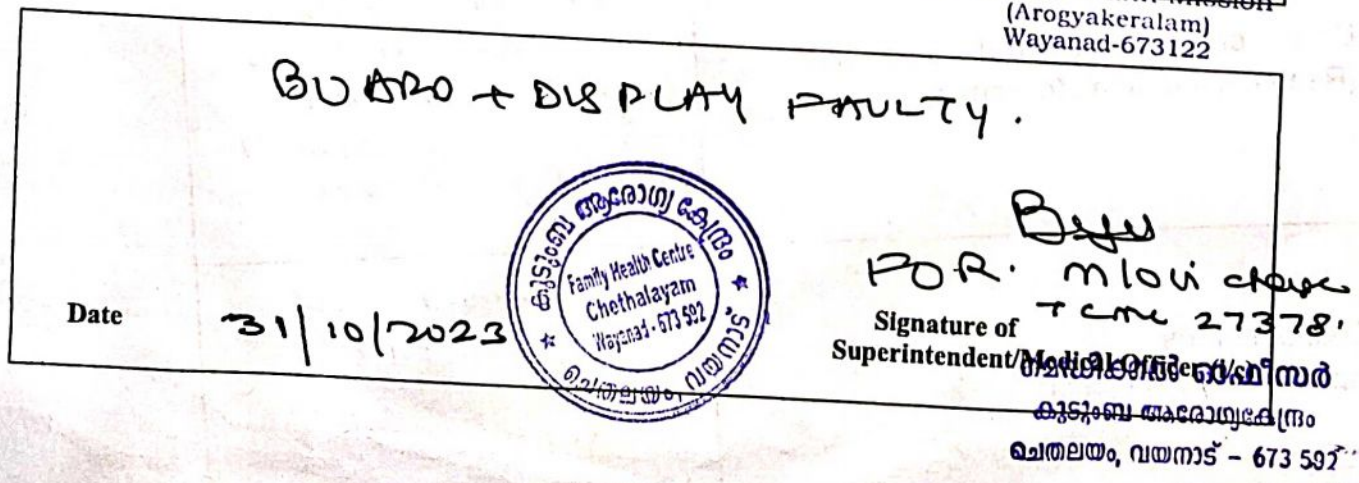 Mission
(Arogyakeralam)
Wayanad-673122
BOARD + DISPLAY FAULTY.
കുടുംബ ആരോഗ്യ കേന്ദ്രം
Family Health Centre
Chethalayam
Wayanad - 673 592
ചെതലയം, വയനാട്
FOR. M/O i/c
TCMC 27378.
Date 31/10/2023
Signature of
Superintendent/Medical Officer
മെഡിക്കൽ ഓഫീസർ
കുടുംബ ആരോഗ്യകേന്ദ്രം
ചെതലയം, വയനാട് – 673 592